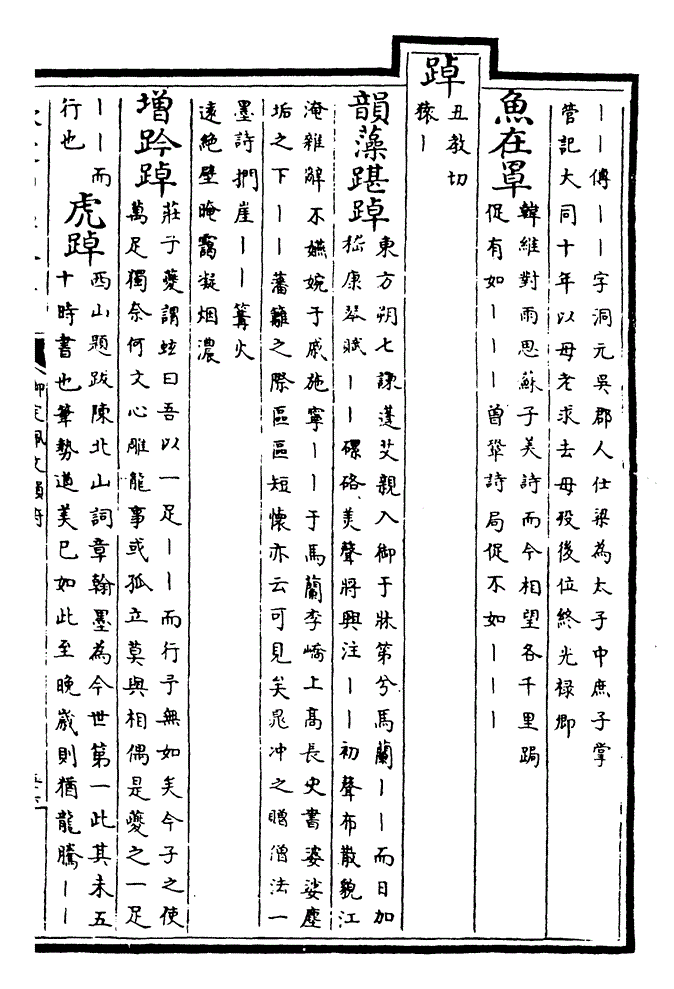 丨丨傳丨丨字洞元吳郡人仕梁為太子中庶子掌
管記大同十年以母老求去母殁後位終光禄卿
魚在罩
韓維對雨思蘇子美詩而今相望各千里跼
促有如丨丨丨曾鞏詩局促不如丨丨丨
踔
丑教切
猿丨
韻藻踸踔
東方朔七諫蓬艾親入御于牀第兮馬蘭丨丨而日加
嵇康琴賦丨丨磥硌美聲將興注丨丨初聲布散貌江
淹雜解不嬿婉于戚施寧丨丨于馬蘭李嶠上髙長史書婆娑塵
垢之下丨丨藩籬之際區區短懐亦云可見矣晁冲之贈僧法一
墨詩捫崖丨丨篝火
逺絶壁晻靄凝烟濃
増趻踔
莊子夔謂蚿曰吾以一足丨丨而行予無如矣今子之使
萬足獨奈何文心雕龍事或孤立莫與相偶是夔之一足
丨丨而
行也
虎踔
西山題跋陳北山詞章翰墨為今世第一此其未五
十時書也筆勢遒美已如此至晚歲則猶龍騰丨丨
御定佩文韻府